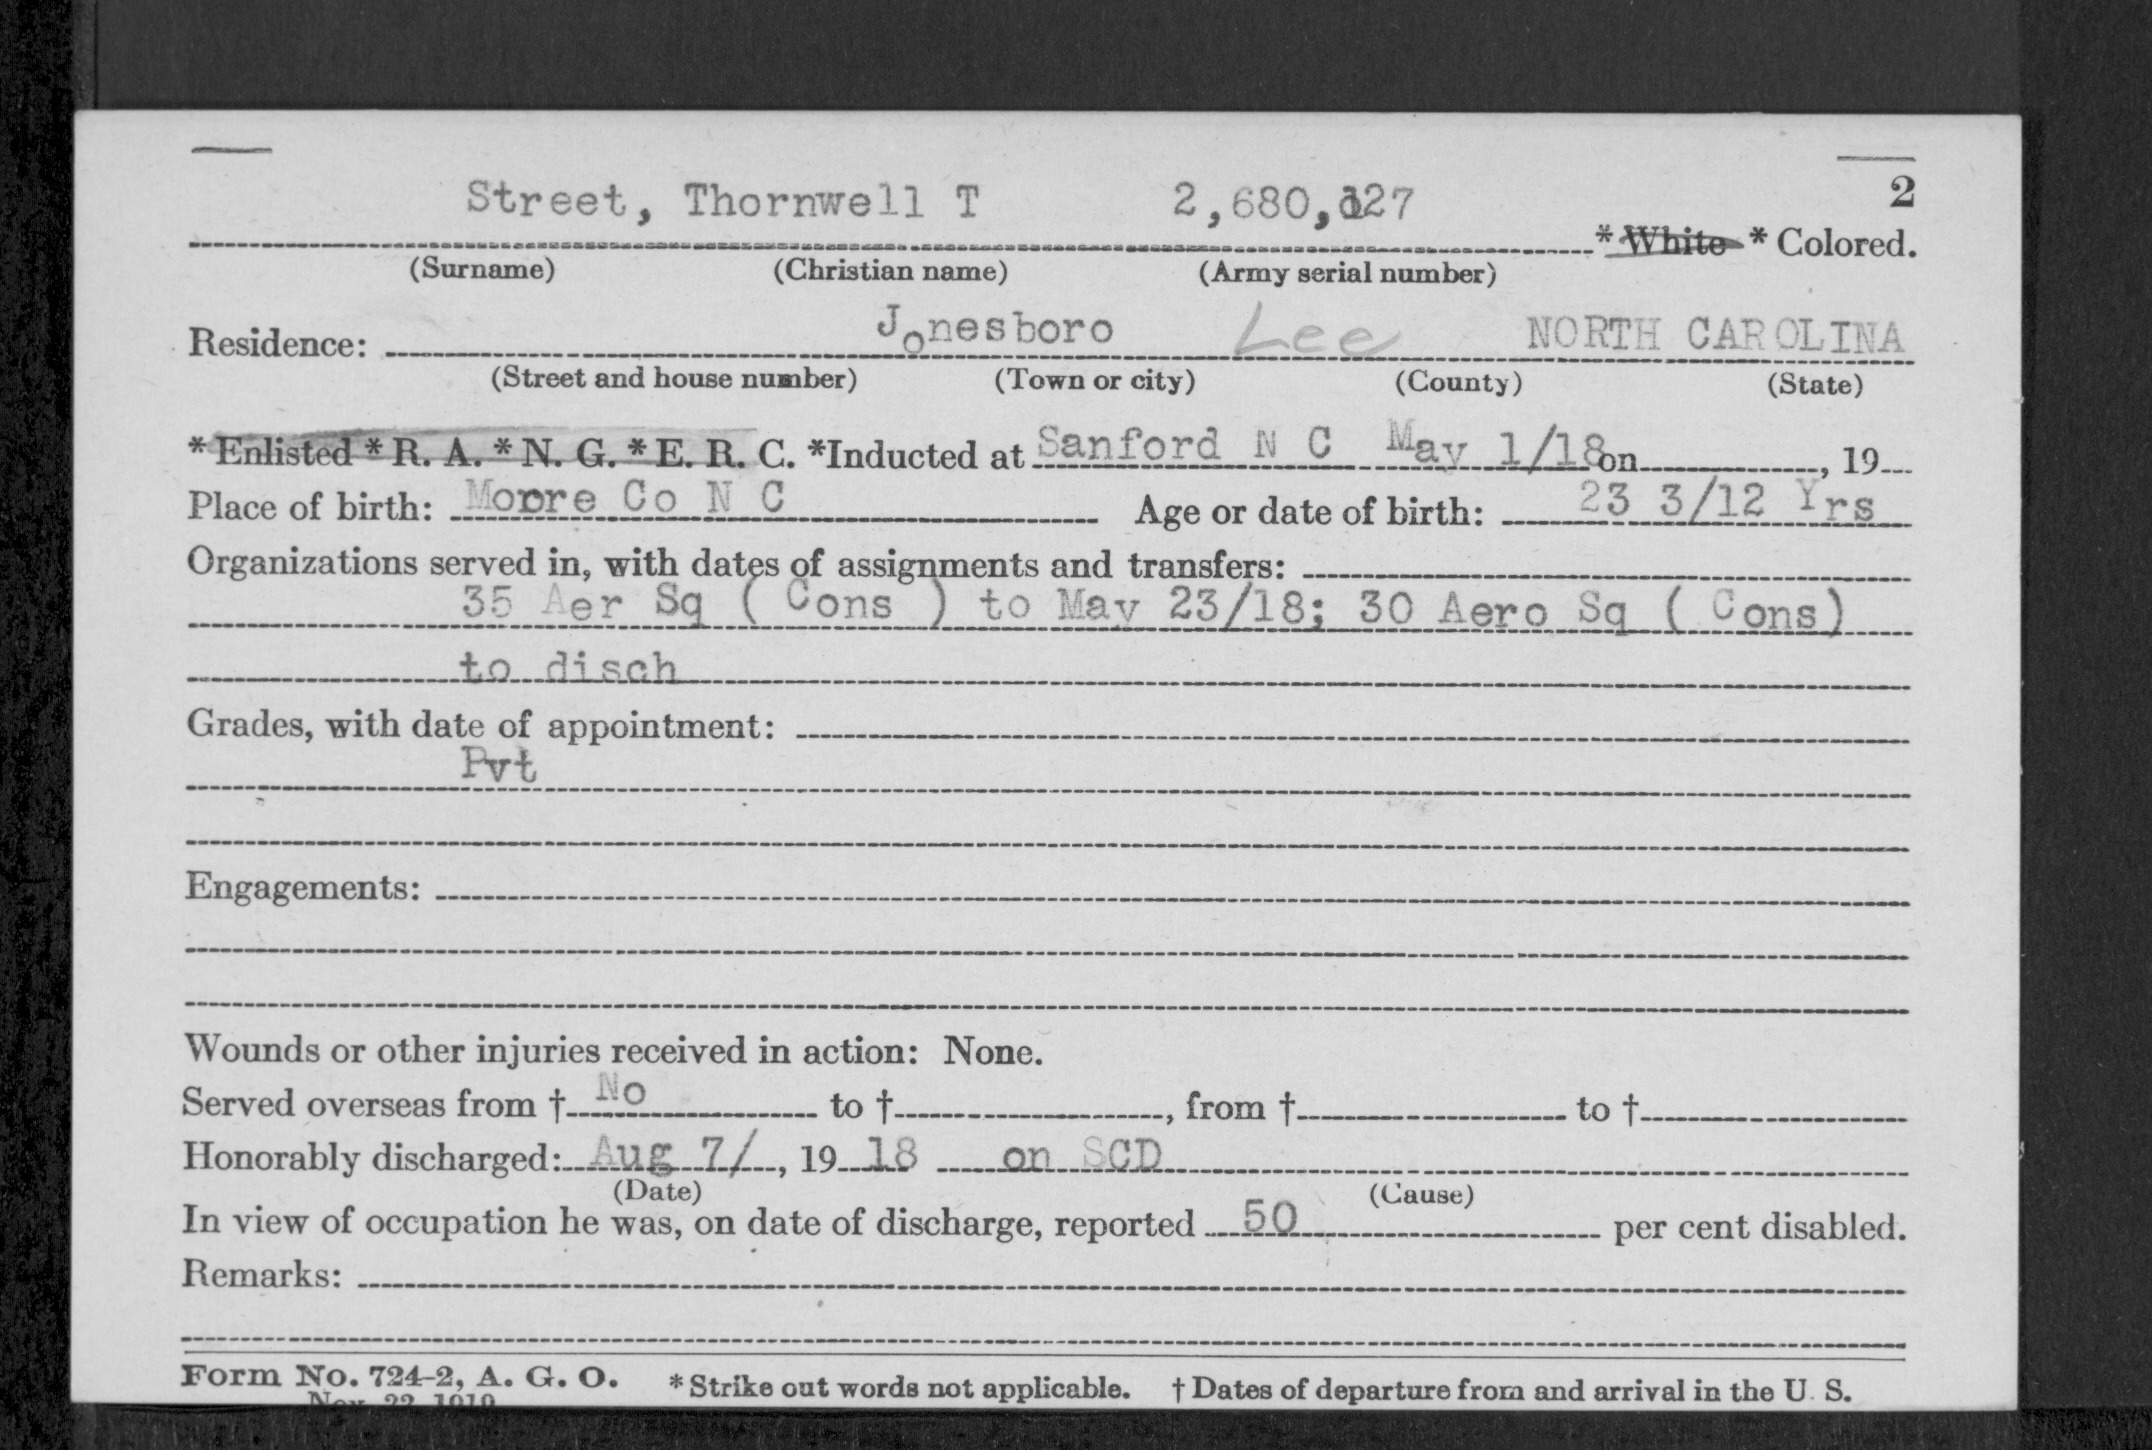 2
Street, Thornwell T 2,680,
* White * Colored.
(Surname) (Christian name) (Army serial number)
Residence: Jonesboro Lee NORTH CAROLINA
(Street and house number) (Town or city) (County) (State)
* Enlisted * R. A. * N. G. * E. R. C. *Inducted at Sanford N C May 1/18 on , 19
Place of birth: Moore Co N C Age or date of birth: 23 3/12 Yrs
Organizations served in, with dates of assignments and transfers:
35 Aer Sq ( Cons ) to May 23/18; 30 Aero Sq ( Cons)
to disch
Grades, with date of appointment:
Pvt
Engagements:
Wounds or other injuries received in action: None.
Served overseas from † No to † , from † to †
Honorably discharged: Aug 7/ , 19 18 on SCD
(Date) (Cause)
In view of occupation he was, on date of discharge, reported 50 per cent disabled.
Remarks:
Form No. 724-2, A. G. O. * Strike out words not applicable. † Dates of departure from and arrival in the U. S.
Nov. 22, 1919